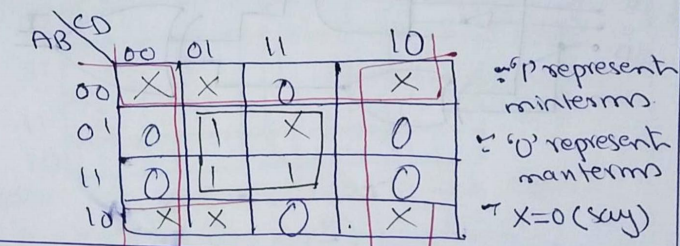 CD
AB
00 01 11 10
00 X X 0 X
01 0 1 X 0
11 0 1 1 0
10 X X 0 X
'1' represent
minterms.
'0' represent
manterms
X=0 (say)